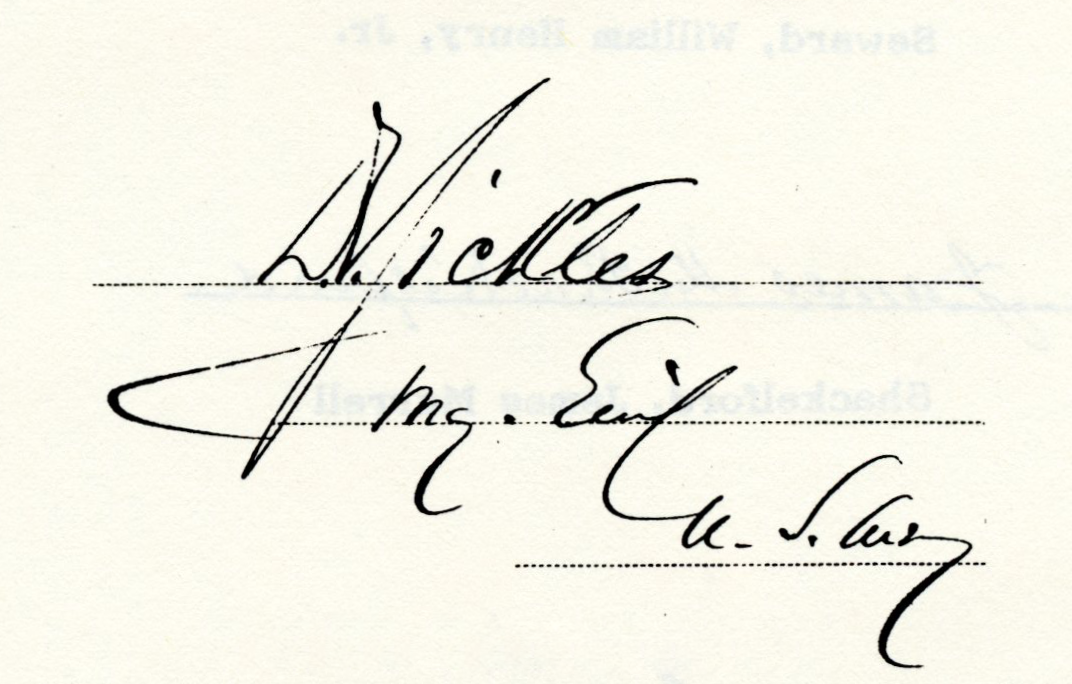 D. Sickles
Maj. Genl
U. S. Army